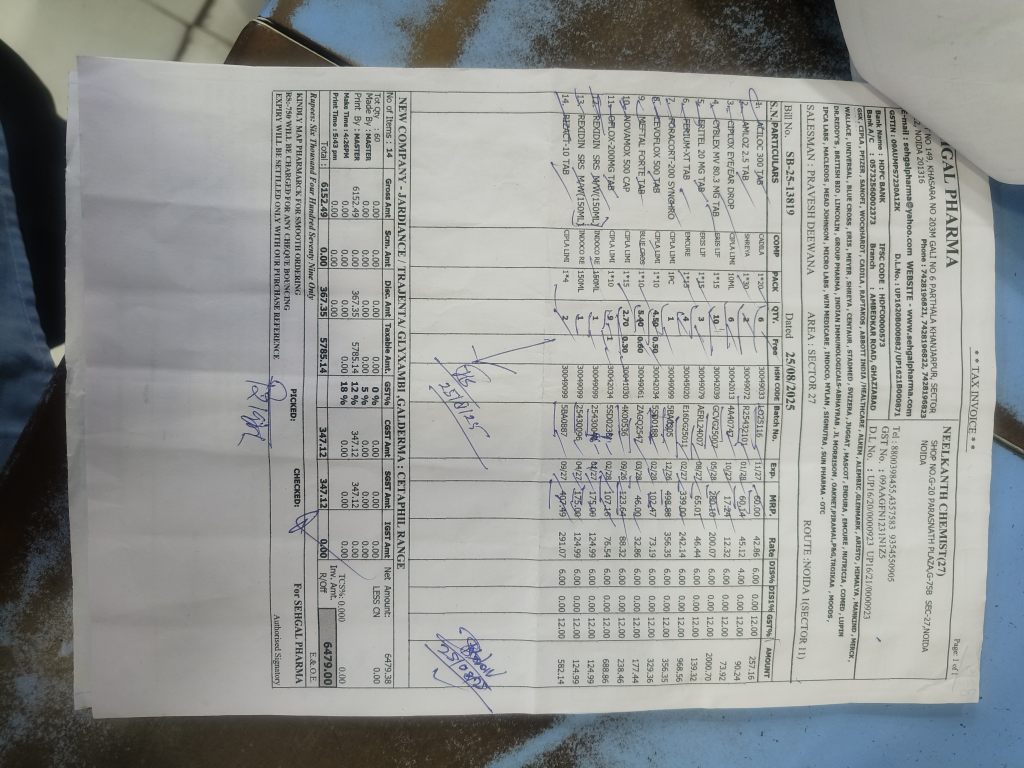 GAL PHARMA
NO 149, KHASARA NO 203M GALI NO 6 PARTHALA KHANJARPUR, SECTOR
NOIDA 201316
Phone : 7428196821, 7428196822, 7428196823
e-mail : sehgalpharma@yahoo.com WEBSITE - www.sehgalpharma.com
GSTIN : 09AUMPS7230A1ZK D.L.No. : UP1620B000882/UP1621B000871
Bank Name : HDFC BANK IFSC CODE : HDFC0000573
Bank A/C : 05732560002373 Branch : AMBEDKAR ROAD, GHAZIABAD
* * TAX INVOICE * *
Page: 1 of 1
NEELKANTH CHEMIST(27)
SHOP NO,G-20 PARASNATH PLAZA,G-75B SEC-27,NOIDA
NOIDA
Tel : 8800398455,4357583 9354550905
GST No. : 09AAGFN1231N1Z5
D.L No. : UP16/20/0000923 UP16/21/0000923
GSK , CIPLA , PFIZER , SANOFI , WOCKHARDT , CADILA , RAPTAKOS , ABBOTT INDIA /HEALTHCARE , ALKEM , ALEMBIC ,GLENMARK , ARISTO , HIMALYA , MANKIND , MERCK ,
WALLACE , UNIVERSAL , BLUE CROSS , ERIS , MEYER , SHREYA , CENTAUR , STADMED , SVIZERA , JUGGAT , MASCOT , ENDURA , EMCURE , NUTRICIA , COMED , LUPIN
DR.REDDY'S , BRITISH BIO , LINCOLN , GROUP PHARMA , INDIAN IMMUNOLOGICALS-ABHAY
IPCA LABS , MACLEODS , MEAD JOHNSON , MICRO LABS , WIN MEDICARE , INDOCO , MYLAN , SIGNUTRA , SUN PHARMA - OTC
SALESMAN : PRAVESH DEEWANA AREA : SECTOR 27 ROUTE :NOIDA 1(SECTOR 11)
Bill No. SB-25-13819 Dated 25/08/2025
S.N. PARTICULARS COMP PACK QTY. Free HSN CODE Batch No. Exp. MRP. Rate DIS% DIS1% GST% AMOUNT
1. 300 TAB CADILA 1*20 6 30049033 11/27 42.86 6.00 0.00 12.00 257.16
2. AMLOZ 2.5 TAB SHREYA 1*30 2 30049072 01/28 60.14 45.12 4.00 0.00 12.00 90.24
3. CIPLOX EYE/EAR DROP CIPLA LIMI 10ML 6 30042013 10/27 12.32 6.00 0.00 12.00 73.92
4. CYBLEX MV 80.3 MG TAB ERIS LIF 1*15 10 30049039 05/28 200.07 6.00 0.00 12.00 2000.70
5. 20 MG TAB ERIS LIF 1*15 3 30049079 08/27 65.01 46.44 6.00 0.00 12.00 139.32
6. TAB EMCURE 1*15 4 30045020 02/27 339.00 242.14 6.00 0.00 12.00 968.56
7. CIPLA LIMI 1PC 1 12/26 498.88 356.35 6.00 0.00 12.00 356.35
8. LEVOFLOX 500 TAB CIPLA LIMI 1*10 4.50 0.50 30042034 02/28 102.47 73.19 6.00 0.00 12.00 329.36
9. MEFTAL FORTE TAB 1*10 5.40 0.60 30049061 ZAGQ2547 03/28 46.00 32.86 6.00 0.00 12.00 177.44
10. NOVAMOX 500 CAP CIPLA LIMI 1*15 2.70 0.30 30041030 4K00536 09/26 123.64 88.32 6.00 0.00 12.00 238.46
11. OFLOX-200MG TAB CIPLA LIMI 1*10 9 1 30042034 02/28 107.16 76.54 6.00 0.00 12.00 688.86
12. REXIDIN SRS M/W(150ML) INDOCO RE 150ML 1 30049099 175.00 124.99 6.00 0.00 12.00 124.99
13. REXIDIN SRS M/W(150ML) INDOCO RE 150ML 1 30049099 04/27 175.00 124.99 6.00 0.00 12.00 124.99
14. REZACT-10 TAB CIPLA LIMI 1*4 2 30049099 5BA0887 09/27 407.49 291.07 6.00 0.00 12.00 582.14
25/8/25
25/08/25
NEW COMPANY - JARDIANCE / TRAJENTA/ GLYXAMBI,GALDERMA : CETAPHIL RANGE
No of Items : 14 Gross Amt Scm. Amt Disc. Amt Taxable Amt GST% CGST Amt SGST Amt IGST Amt Net Amount: 6479.38
Tot Qty : 63 0.00 0.00 0.00 0.00 0 % 0.00 0.00 0.00 LESS CN 0.00
Made By : MASTER 0.00 0.00 0.00 0.00 5 % 0.00 0.00 0.00
Print By : MASTER 6152.49 0.00 367.35 5785.14 12 % 347.12 347.12 0.00
Make Time : 4:26PM 0.00 0.00 0.00 0.00 18 % 0.00 0.00 0.00 TCS%: 0.000 0.00
Print Time : 5:43 pm Total : 6152.49 0.00 367.35 5785.14 347.12 347.12 0.00 Inv. Amt. R/Off 6479.00
Rupees: Six Thousand Four Hundred Seventy Nine Only E.&.O.E.
KINDLY MAP PHARMARCK FOR SMOOTH ORDERING PICKED: CHECKED: For SEHGAL PHARMA
RS:-750 WILL BE CHARGED FOR ANY CHEQUE BOUNCING
EXPIRY WILL BE SETTLED ONLY WITH OUR PURCHASE REFERENCE Authorised Signatory